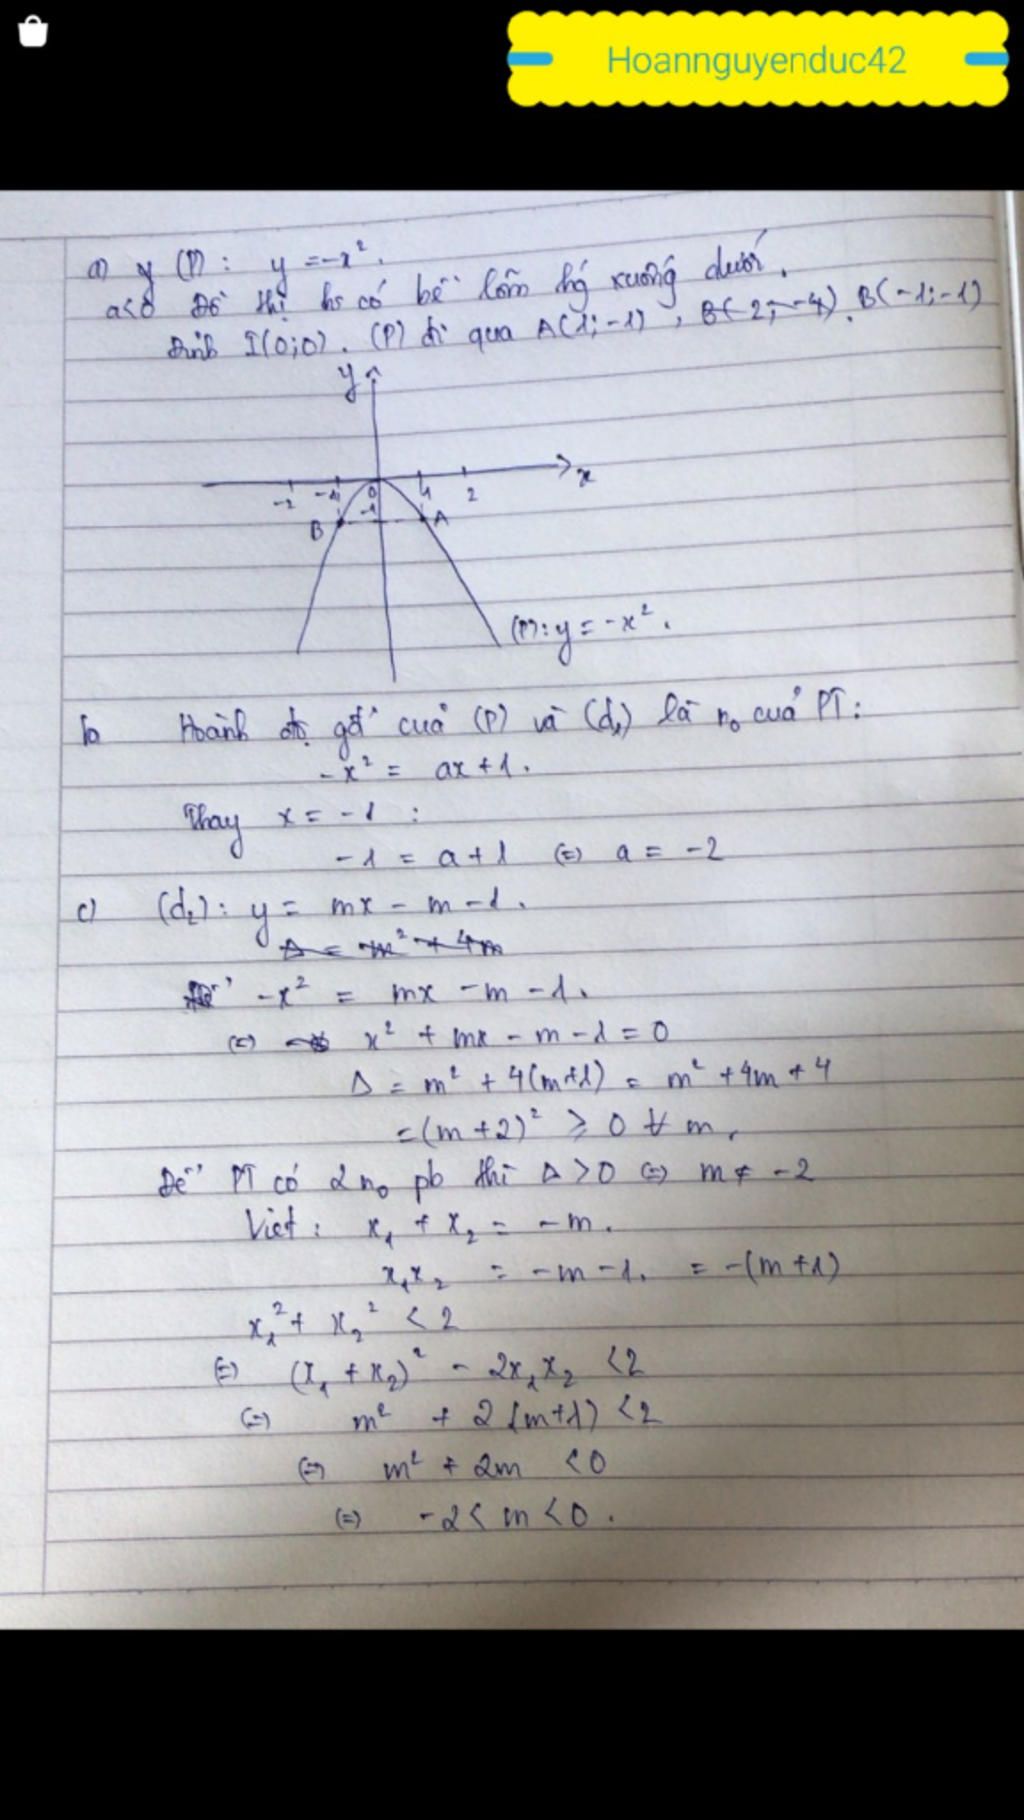 Hoannguyenduc42
a) y (P): y = -x².
a<0 Đồ thị hs có bề lõm hg xuống dưới.
đỉnh I(0;0). (P) đi qua A(1;-1), B(-2;-4). B(-1;-1)
y
x
-2 -1 0 1 2
-1
B A
(P): y = -x².
b Hoành độ gđ của (P) và (d₁) là n₀ của PT:
-x² = ax + 1.
Thay x = -1 :
-1 = a + 1 (=) a = -2
c) (d₂): y = mx - m - 1.
Δ = m² + 4m
-x² = mx - m - 1.
(=) x² + mx - m - 1 = 0
Δ = m² + 4(m+1) = m² + 4m + 4
= (m+2)² ≥ 0 ∀ m,
Để PT có 2 n₀ pb thì Δ > 0 (=) m ≠ -2
Viet: x₁ + x₂ = -m.
x₁x₂ = -m - 1. = -(m+1)
x₁² + x₂² < 2
(=) (x₁ + x₂)² - 2x₁x₂ < 2
(=) m² + 2(m+1) < 2
(=) m² + 2m < 0
(=) -2 < m < 0.